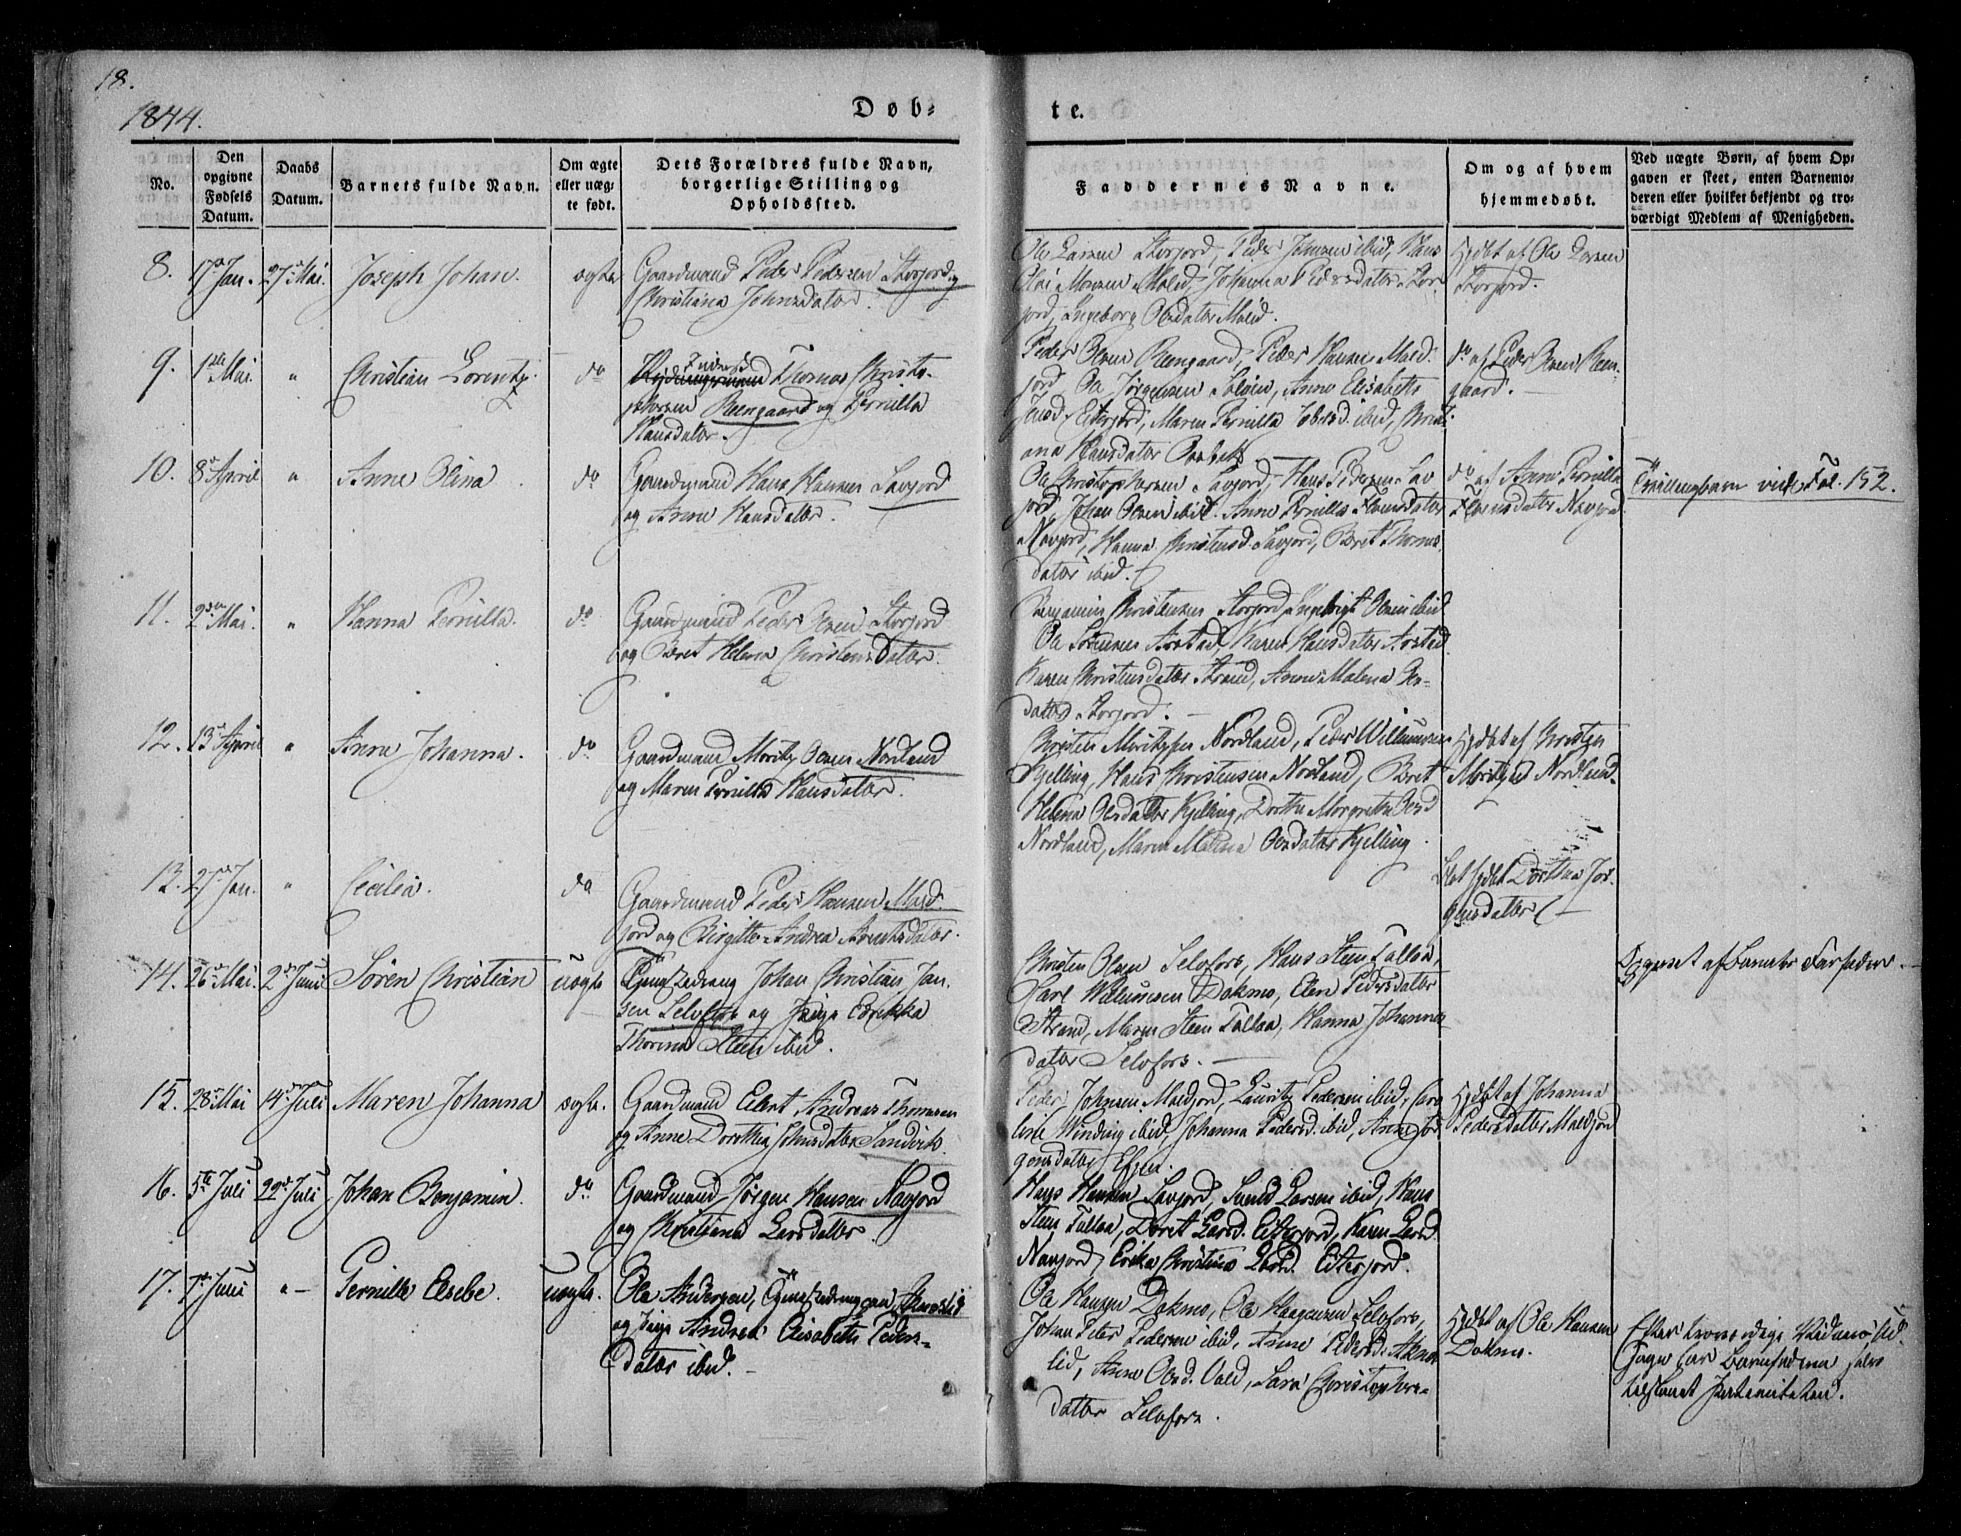 18.
1844.
Døb=
te.
No.
Den
opgivne
Fødsels
Datum.
Daabs
Datum.
Barnets fulde Navn.
Om ægte
eller uæg-
te født.
Dets Forældres fulde Navn,
borgerlige Stilling og
Opholdssted.
Faddernes Navne.
Om og af hvem
hjemmedøbt.
Ved uægte Børn, af hvem Op-
gaven er skeet, enten Barnemo-
deren eller hvilket bekjendt og tro-
værdigt Medlem af Menigheden.
8. 17de Jan. 27de Mai. Joseph Johan. ægte Gaardmand Peder Pedersen Storjord og
Christiana Johnsdatter.
Ole Larsen Storjord, Peder Johnsen ibid, Hans
Olai Monsen Molid, Johanna Pedersdatter Stor-
jord, Ingeborg Olsdatter Molid.
Hjdbt af Ole Larsen
Storjord.
9. 1ste Mai. " Christian Lorentz. do
Thomas Christo-
phersen Reengaard og Pernilla
Hansdatter.
Peder Olsen Reengaard, Peder Hansen Mald-
jord, Ole Jørgensen, Anne Elisabeth
Jensd. Eiterjord, Maren Pernilla ibid, Christi-
ana Hansdatter
do af Peder Olsen Reen-
gaard.
10. 8de April " Anne Olina do Gaardmand Hans Hansen Savjord
og Anne Hansdatter.
Ole Christophersen Savjord, Hans Pedersen Sav-
jord, Johan Olsen ibid. Anne Pernilla
Navjord, Hanna Christensd. Savjord, Beret Thomas-
datter ibid.
do af Anne Pernilla
Navjord.
Tvillingbarn vide Fol. 152.
11. 2den Mai. " Hanna Pernilla. do Gaardmand Peder Olsen Storjord
og Beret Helena Christensdatter.
Benjamin Christensen Storjord, Ingebrigt Olsen ibid
Ole Sørensen Arstad, Karen Hansdatter Arstad
Karen Christensdatter Strand, Anne Malena Ols-
datter Storjord.
12. 13de April " Anne Johanna. do Gaardmand Moritz Olsen Nordland
og Maren Pernilla Hansdatter.
Christen Moritzsen Nordland, Peder Willumsen
Kjelling, Hans Christensen Nordland, Beret
Helena Olsdatter Kjelling, Dorthe Margrethe Olsd
Nordland, Maren Malena Olsdatter Kjelling.
Hjdbt af Christen
Moritzs. Nordland.
13. 27de Jan. " Cecilia. do Gaardmand Peder Hansen Mald-
jord og Birgitte Andrea Arentsdatter.
Blot hjdbt Dorthea Jør-
gensdatter
14. 26de Mai. 2den Juni Søren Christian uægte Tjenestedreng Johan Christian Jan-
sen Selvfors og Pige Edrikka
Thorina Steen ibid.
Christen Olsen Selvfors, Hans Steen Tollaa,
Carl Willumsen Dokmo, Elen Pedersdatter
Strand, Maren Steen Tollaa, Hanna Johannes-
datter Selvfors.
Opgivet af Barnets Farfader.
15. 28de Mai 14de Juli Maren Johanna ægte. Gaardmand Elert Andreas Thomsen
og Anne Dorothea Johnsdatter Sandvik.
Peder Johnsen Maldjord, Lauritz Pedersen ibid, Caro-
line Winding ibid, Johanna Pedersd. ibid, Anne Jør-
gensdatter
Hjdbt af Johanna
Pedersdatter Maldjord
16. 5te Juli 22de Juli Johan Benjamin. do Gaardmand Jørgen Hansen Navjord
og Christiana Larsdatter
Hans Hansen Savjord, Svend Larsen ibid, Hans
Steen Tollaa, Beret Larsd. Eiterjord, Karen Larsd.
Navjord, Erika Christina Larsd. Eiterjord.
17. 7de Juni " Pernille Elsebe. uægte. Ole Andersen,
og Pige Andrea Elisabeth Peders-
datter ibid.
Ole Hansen Dokmo, Ole Haagensen Selvfors,
Johan Peter Pedersen ibid, Anne Pedersd.
lid, Anne Olsd. Vold, Sara Christophers-
datter Selvfors.
Hjdbt af Ole Hansen
Dokmo.
Efter troværdige
har Barnefaderen selv
tilstaaet Paterniteten.